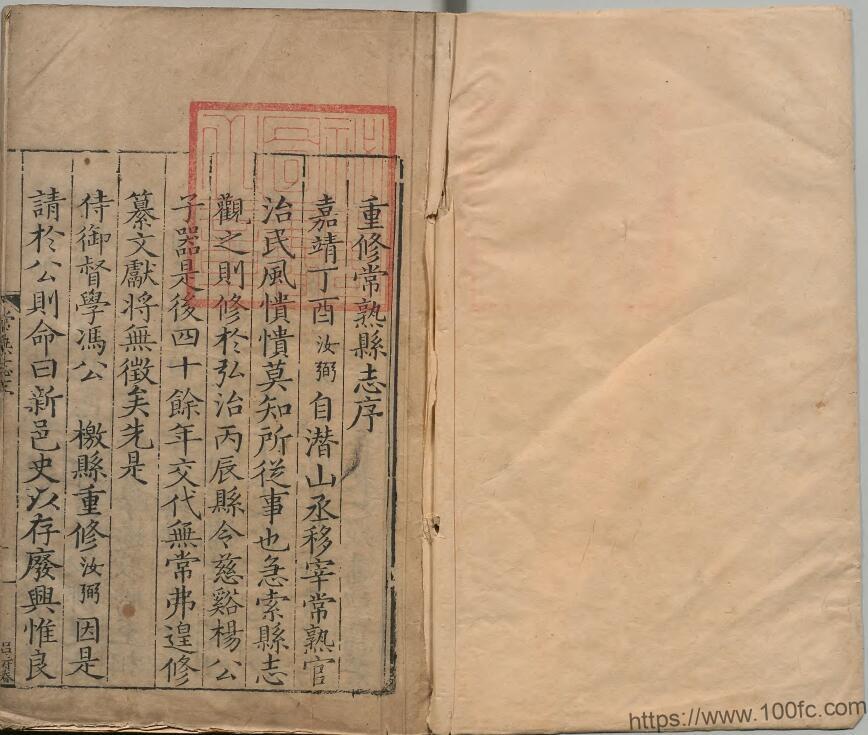 重修常熟縣志序
嘉靖丁酉汝弼自潛山丞移宰常熟官
治民風憒憒莫知所從事也急索縣志
觀之則修於弘治丙辰縣令慈谿楊公
子器是後四十餘年交代無常弗遑修
纂文獻將無徵矣先是
侍御督學馮公 檄縣重修汝弼因是
請於公則命曰新邑史以存廢興惟良
https://www.100fc.com